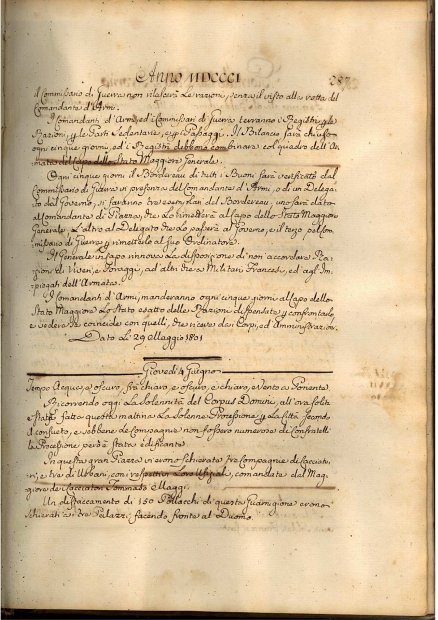 Anno MDCCCI
287
il Commissario di Guerra non rilascerà le razioni, senza il visto alla ricetta del
Comandante d'Armi.
I Comandanti d'Armi, ed i Commissari di Guerra terranno i Registri p. le
Razioni, p. le Parti Sedentarie, e p. i Passaggi. Il Bilancio sarà chiuso
ogni cinque giorni, ed i Registri debbono combinare col quadro dell'Ar-
mata del Capo dello Stato Maggiore Generale.
Ogni cinque giorni il Bordereau di tutti i Buoni sarà verificato dal
Commissario di Guerra in presenza del Comandante d'Armi, o di un Delega-
to dal Governo, si faranno tre esemplari del Bordereau, uno sarà dato
al Comandante di Piazza, che lo rimetterà al Capo dello Stato Maggior
Generale, L'altro al Delegato che lo passerà al Governo, e il terzo pel Com-
missario di Guerra p. rimetterlo al suo Ordinatore.
Il Generale in Capo rinnova la disposizione di non accordare Ra-
zioni di Viveri, e Foraggi, ad altri che a Militari Francesi, ed agl'Im-
piegati dell'Armata.
I Comandanti d'Armi, manderanno ogni cinque giorni al Capo dello
Stato Maggiore lo stato esatto delle Razioni dispensate p. confrontarlo,
e vedere se coincide con quelli, che riceve dai Corpi, ed Amministrazion.
Dato li 29 Maggio 1801
Giovedì 4 Giugno
Tempo Acque, e oscuro, frà chiaro, e oscuro, e chiaro, e Vento a Ponente
Ricorrendo oggi la Solennità del Corpus Domini, all'ora solita
è Stata fatta questa mattina la Solenne Processione p. la Città second.
il consueto, e sebbene le Compagnie non fossero numerose di Confratelli
la Processione però è Stata edificante.
In questa gran Piazza vi erano schierate tre Compagnie di Cacciato-
ri, e tre di Urbani, con i respettivi Loro Ufiziali, comandate dal Mag-
giore de Cacciatori Tommaso Maggi.
Un distaccamento di 150 Pollacchi di questa Guarnigione erono
schierati a i tre Palazzi facendo fronte al Duomo.